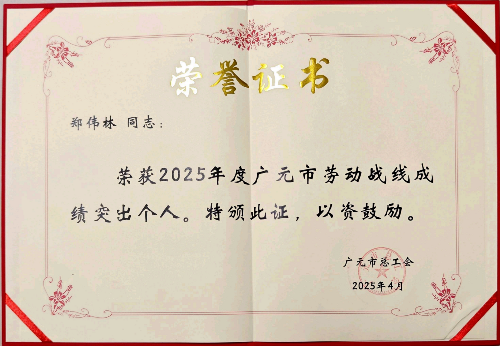 荣誉证书
郑伟林 同志：
荣获2025年度广元市劳动战线成
绩突出个人。特颁此证，以资鼓励。
广元市总工会
2025年4月